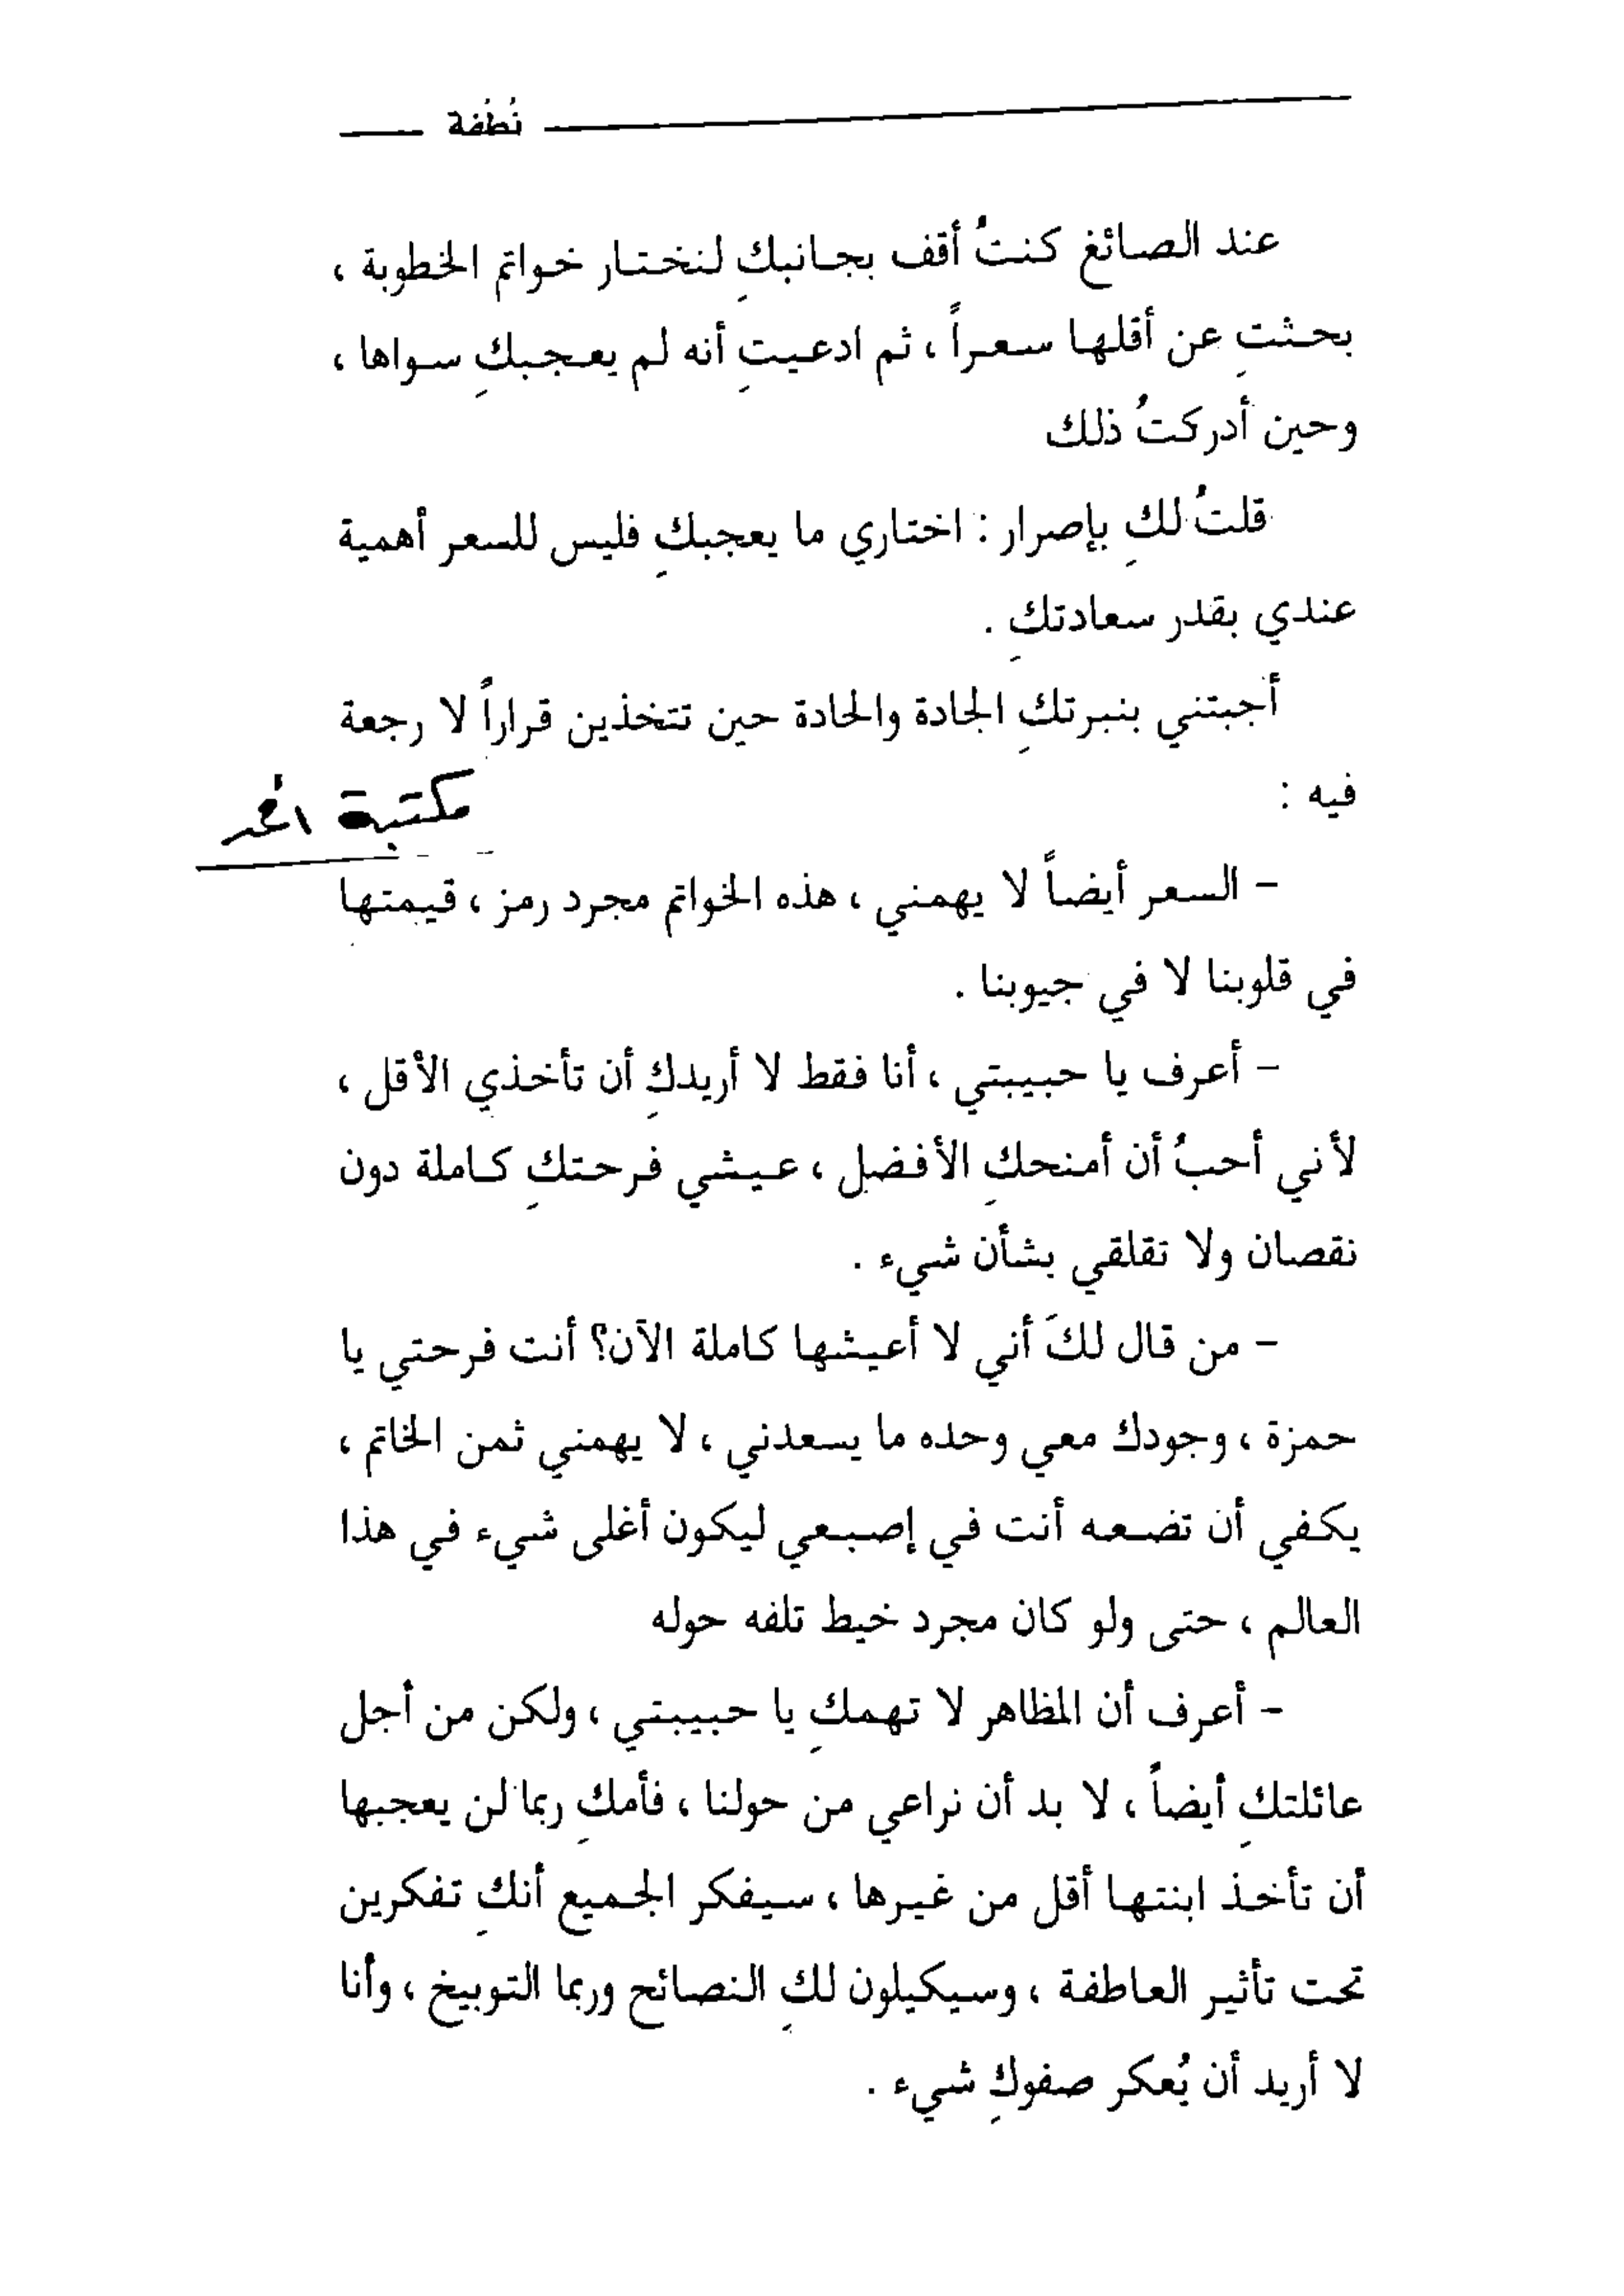 نُطْفة
عند الصائغ كنتُ أقف بجانبكِ لنختار خواتم الخطوبة ،
بحثتِ عن أقلها سعراً ، ثم ادعيتِ أنه لم يعجبكِ سواها ،
وحين أدركتُ ذلك
قلتُ لكِ بإصرار : اختاري ما يعجبكِ فليس للسعر أهمية
عندي بقدر سعادتكِ .
أجبتني بنبرتكِ الجادة والحادة حين تتخذين قراراً لا رجعة
فيه :
مكتبة
– السعر أيضاً لا يهمني ، هذه الخواتم مجرد رمز ، قيمتها
في قلوبنا لا في جيوبنا .
– أعرف يا حبيبتي ، أنا فقط لا أريدكِ أن تأخذي الأقل ،
لأني أحبُ أن أمنحكِ الأفضل ، عيشي فرحتكِ كاملة دون
نقصان ولا تقلقي بشأن شيء .
– من قال لكَ أني لا أعيشها كاملة الآن؟ أنت فرحتي يا
حمزة ، وجودك معي وحده ما يسعدني ، لا يهمني ثمن الخاتم ،
يكفي أن تضعه أنت في إصبعي ليكون أغلى شيء في هذا
العالم ، حتى ولو كان مجرد خيط تلفه حوله
– أعرف أن المظاهر لا تهمكِ يا حبيبتي ، ولكن من أجل
عائلتكِ أيضاً ، لا بد أن نراعي من حولنا ، فأمكِ ربما لن يعجبها
أن تأخذ ابنتها أقل من غيرها ، سيفكر الجميع أنكِ تفكرين
تحت تأثير العاطفة ، وسيكيلون لكِ النصائح وربما التوبيخ ، وأنا
لا أريد أن يُعكر صفوكِ شيء .